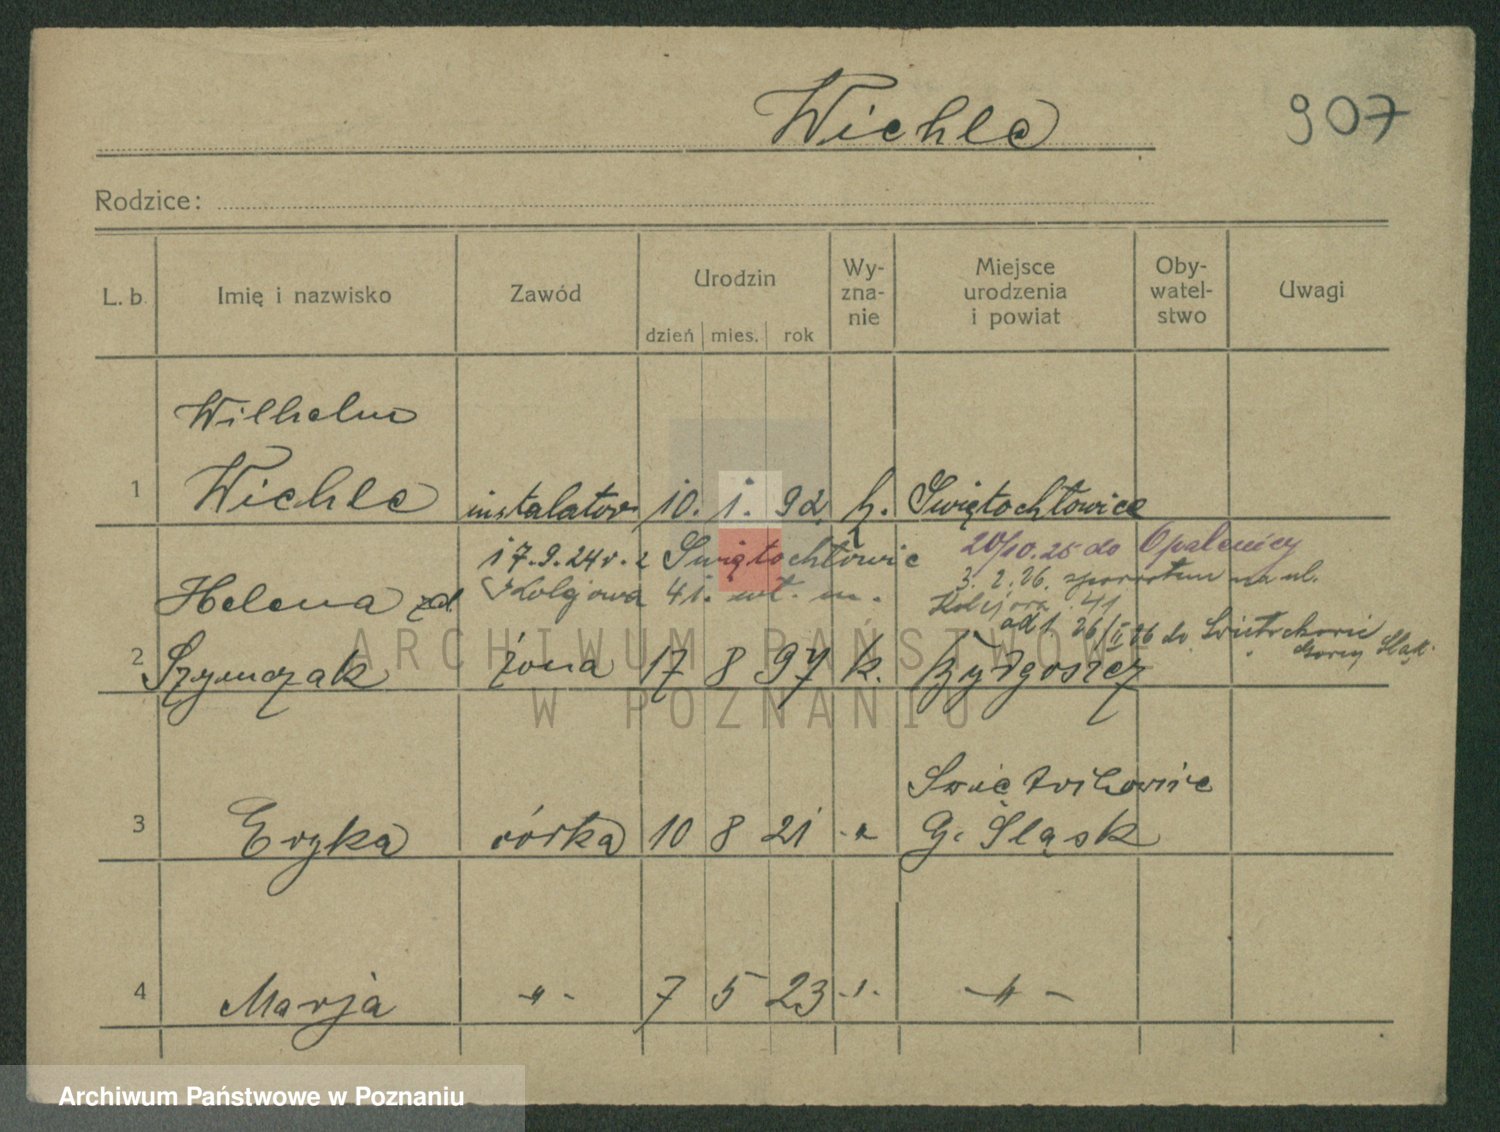 Wichle 907
Rodzice:
L. b. Imię i nazwisko Zawód Urodzin Wy-zna-nie Miejsce urodzenia i powiat Oby-watel-stwo Uwagi
dzień mies. rok
Wilhelm
1 Wichle instalator 10. 1. 92. k. Świętochłowice
17.9.24 r. z Świętochłowic 20/10.25 do Opalenicy
Kolejowa 41. wt. m. 3.2.26. zpowrotem na ul.
Kolejowa 41
Helena zd. od 1 26/II 26 do Świętochowic
Gorny Śląsk
2 Szymczak żona 17 8 97 k. Bydgoszcz
Święt
3 Eryka córka 10 8 21 -"- G. Śląsk
4 Marja -"- 7 5 23 -"- -"-
ARCHIWUM PAŃSTWOWE
W POZNANIU
Archiwum Państwowe w Poznaniu